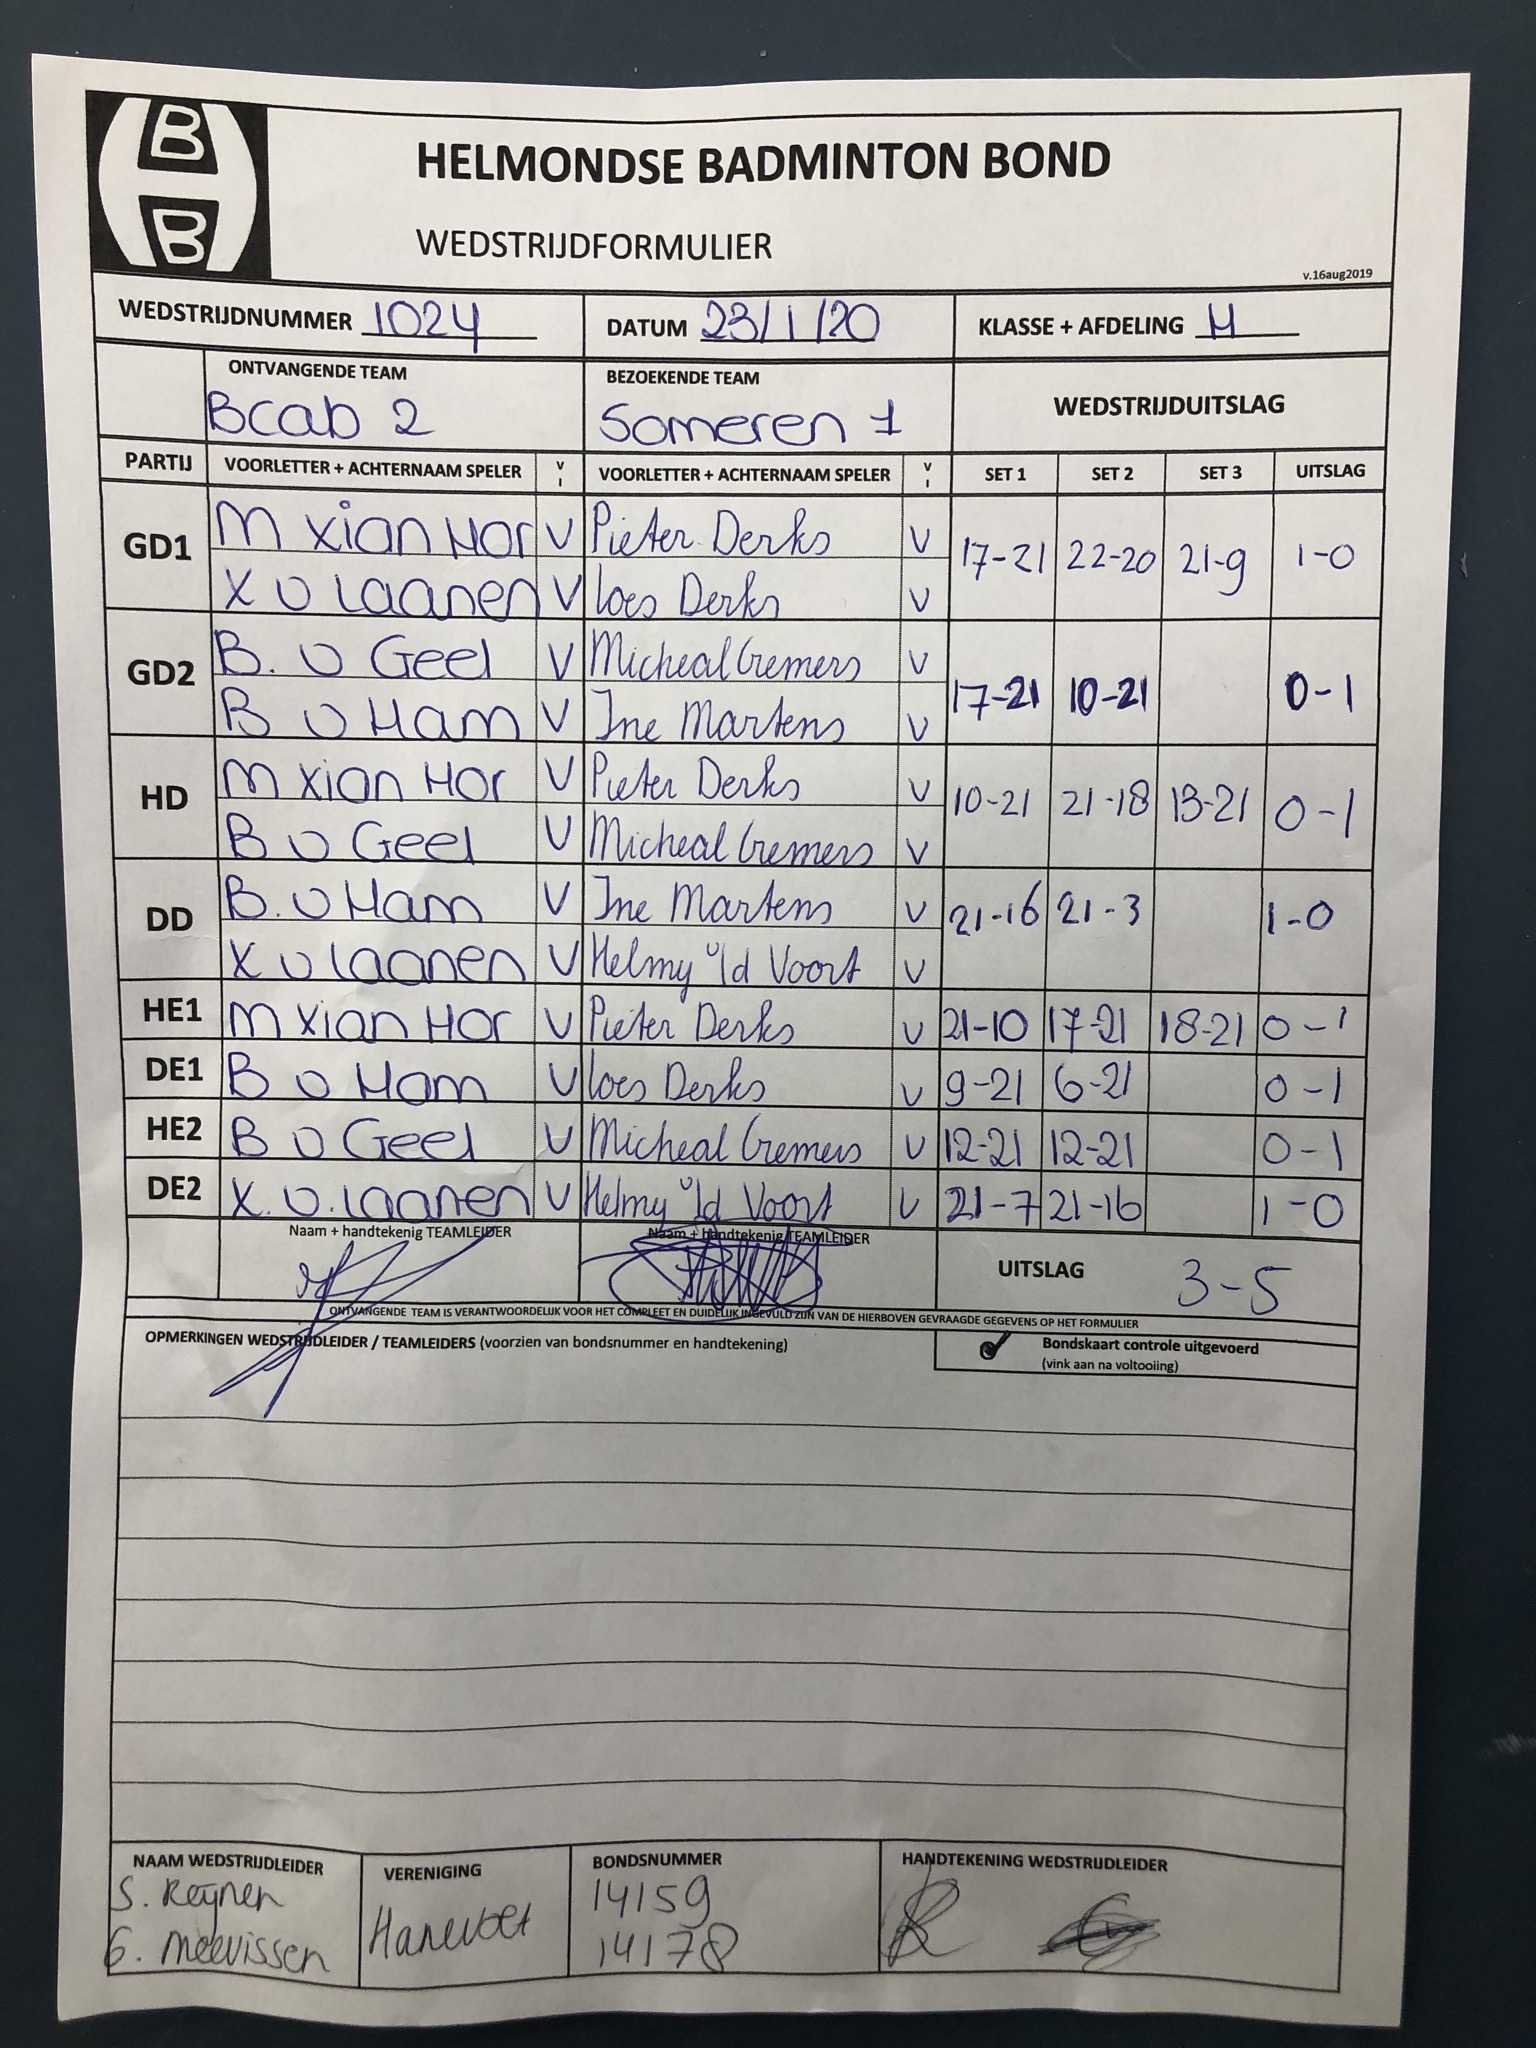 B
H
B
HELMONDSE BADMINTON BOND
WEDSTRIJDFORMULIER
v.16aug2019
WEDSTRIJDNUMMER 1024 DATUM 23/1/20 KLASSE + AFDELING H
ONTVANGENDE TEAM BEZOEKENDE TEAM WEDSTRIJDUITSLAG
Bcab 2 Someren 1
PARTIJ VOORLETTER + ACHTERNAAM SPELER V I VOORLETTER + ACHTERNAAM SPELER V I SET 1 SET 2 SET 3 UITSLAG
GD1 M Xian Hor V Pieter Derks V 17-21 22-20 21-9 1-0
X v Laanen V Loes Derks V
GD2 B. v Geel V Micheal Cremers V 17-21 10-21 0-1
B v Ham V Ine Martens V
HD M Xian Hor V Pieter Derks V 10-21 21-18 13-21 0-1
B v Geel V Micheal Cremers V
DD B. v Ham V Ine Martens V 21-16 21-3 1-0
X v Laanen V Helmy v/d Voort V
HE1 M Xian Hor V Pieter Derks V 21-10 17-21 18-21 0-1
DE1 B v Ham V Loes Derks V 9-21 6-21 0-1
HE2 B v Geel V Micheal Cremers V 12-21 12-21 0-1
DE2 X. v. Laanen V Helmy v/d Voort V 21-7 21-16 1-0
Naam + handtekenig TEAMLEIDER Naam + handtekenig TEAMLEIDER
UITSLAG 3-5
ONTVANGENDE TEAM IS VERANTWOORDELIJK VOOR HET COMPLEET EN DUIDELIJK INGEVULD ZIJN VAN DE HIERBOVEN GEVRAAGDE GEGEVENS OP HET FORMULIER
OPMERKINGEN WEDSTRIJDLEIDER / TEAMLEIDERS (voorzien van bondsnummer en handtekening)
Bondskaart controle uitgevoerd
(vink aan na voltooiing)
NAAM WEDSTRIJDLEIDER VERENIGING BONDSNUMMER HANDTEKENING WEDSTRIJDLEIDER
S. Reynen Hanevoet 14159
G. Meevissen 14178